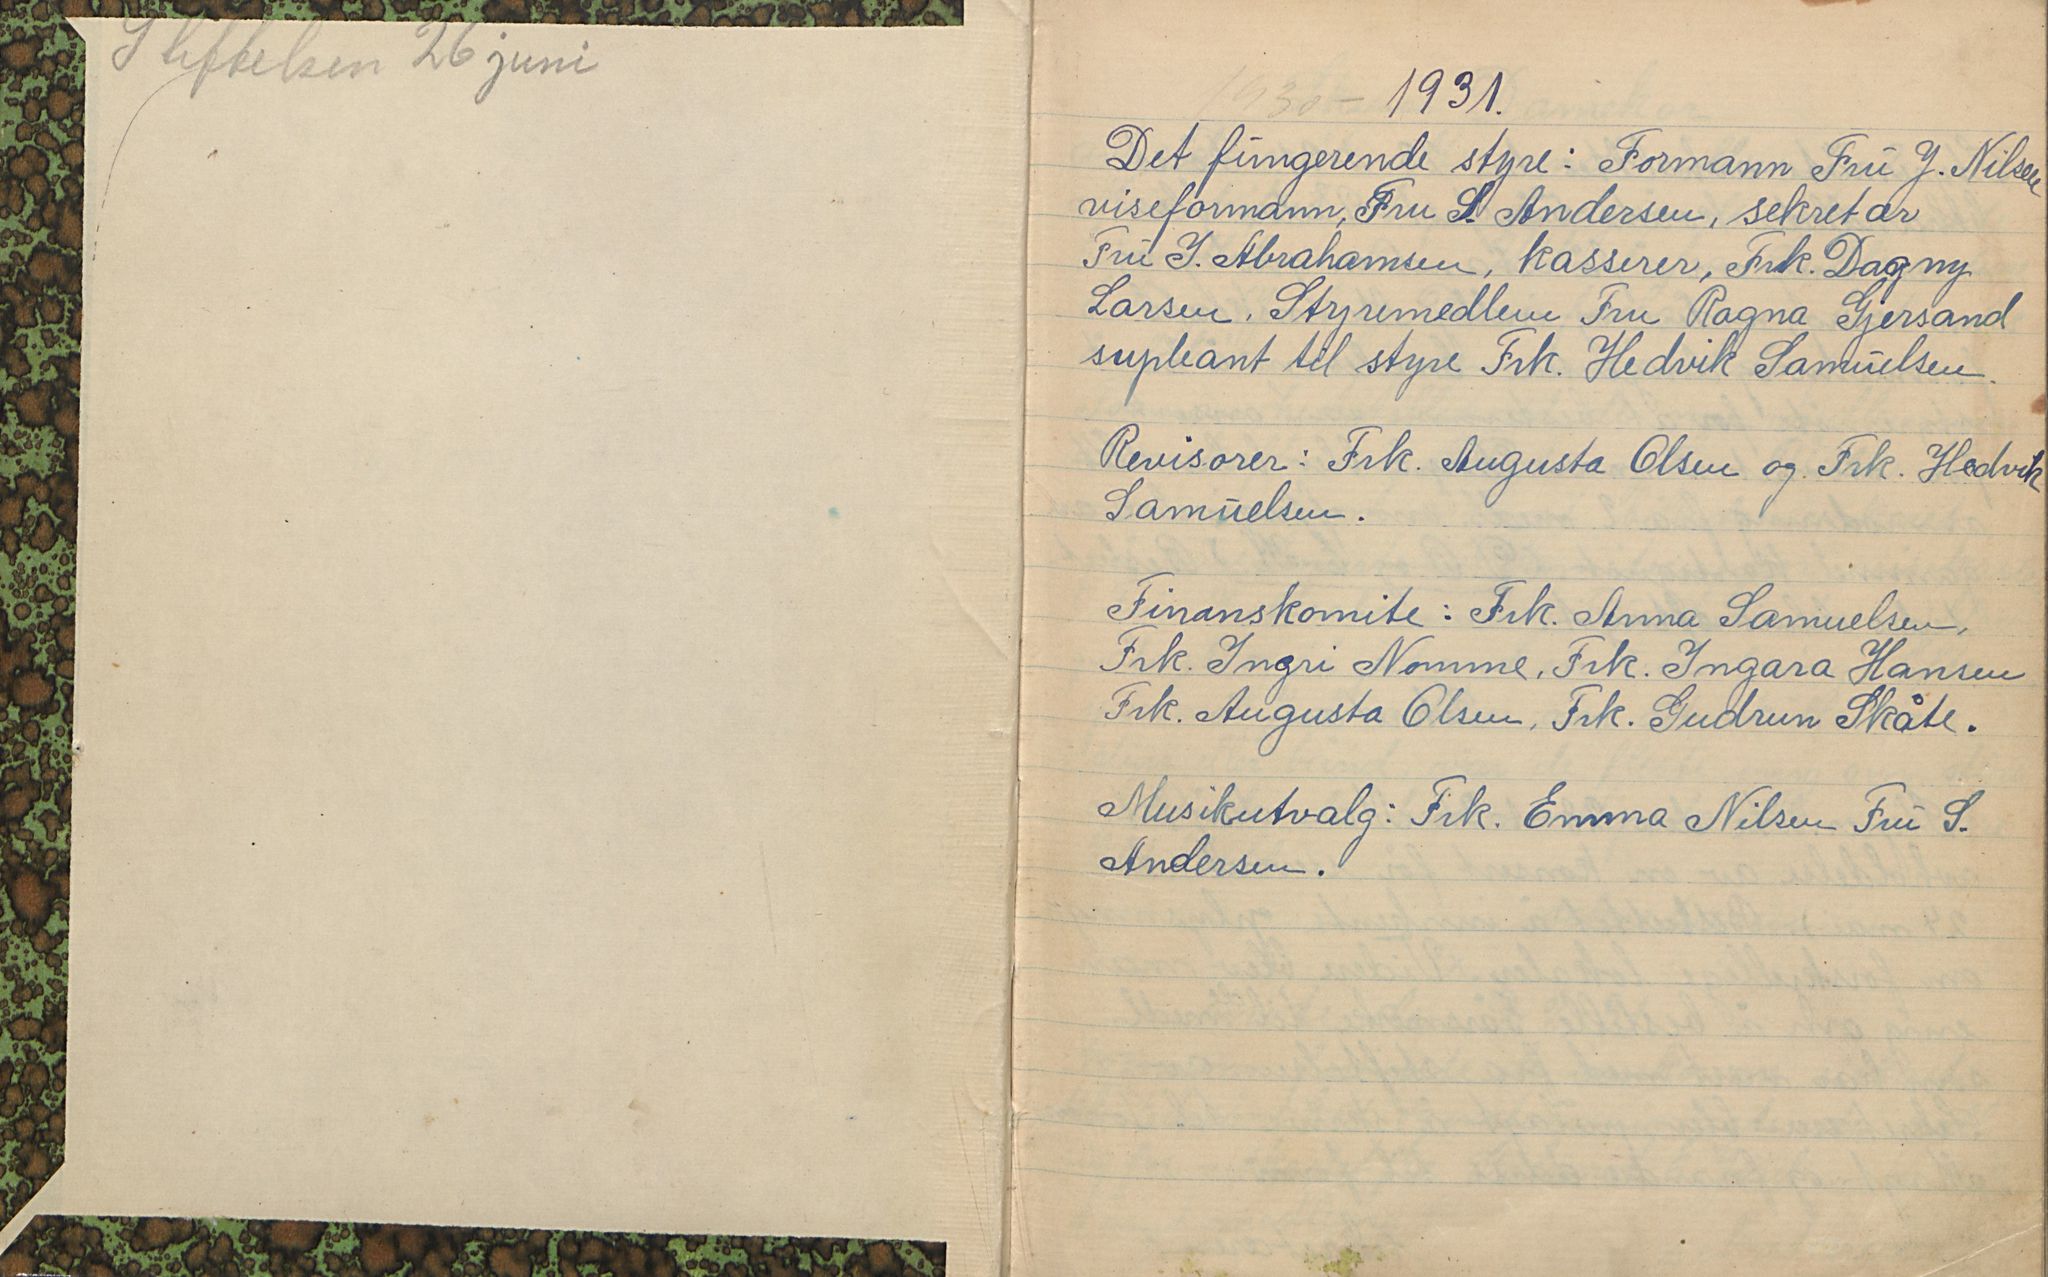 Stiftelsen 26 juni
1930 - 1931.
Det fungerende styre: Formann Fru Y. Nilsen
viseformann, Fru S. Andersen, sekretær
Fru I. Abrahamsen, kasserer, Frk. Dagny
Larsen. Styremedlem Fru Ragna Gjersand
supleant til styre Frk. Hedvik Samuelsen.
Revisorer: Frk. Augusta Olsen og Frk. Hedvik
Samuelsen.
Finanskomite: Frk. Anna Samuelsen,
Frk. Ingri Nomme, Frk. Ingara Hansen
Frk. Augusta Olsen, Frk. Gudrun Skåte.
Musikutvalg: Frk. Emma Nilsen Fru S.
Andersen.